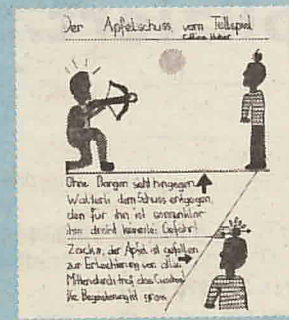 Der Apfelschuss vom Tellspiel
Ohne Bangen sieht hingegen
Walterli dem Schuss entgegen,
den für ihn ist sonnenklar
ihm droht keinerlei Gefahr!
Zack, der Apfel ist gefallen
zur Erleichterung von allen
Mittendurch traf das Geschoss
Die Begeisterung ist gross